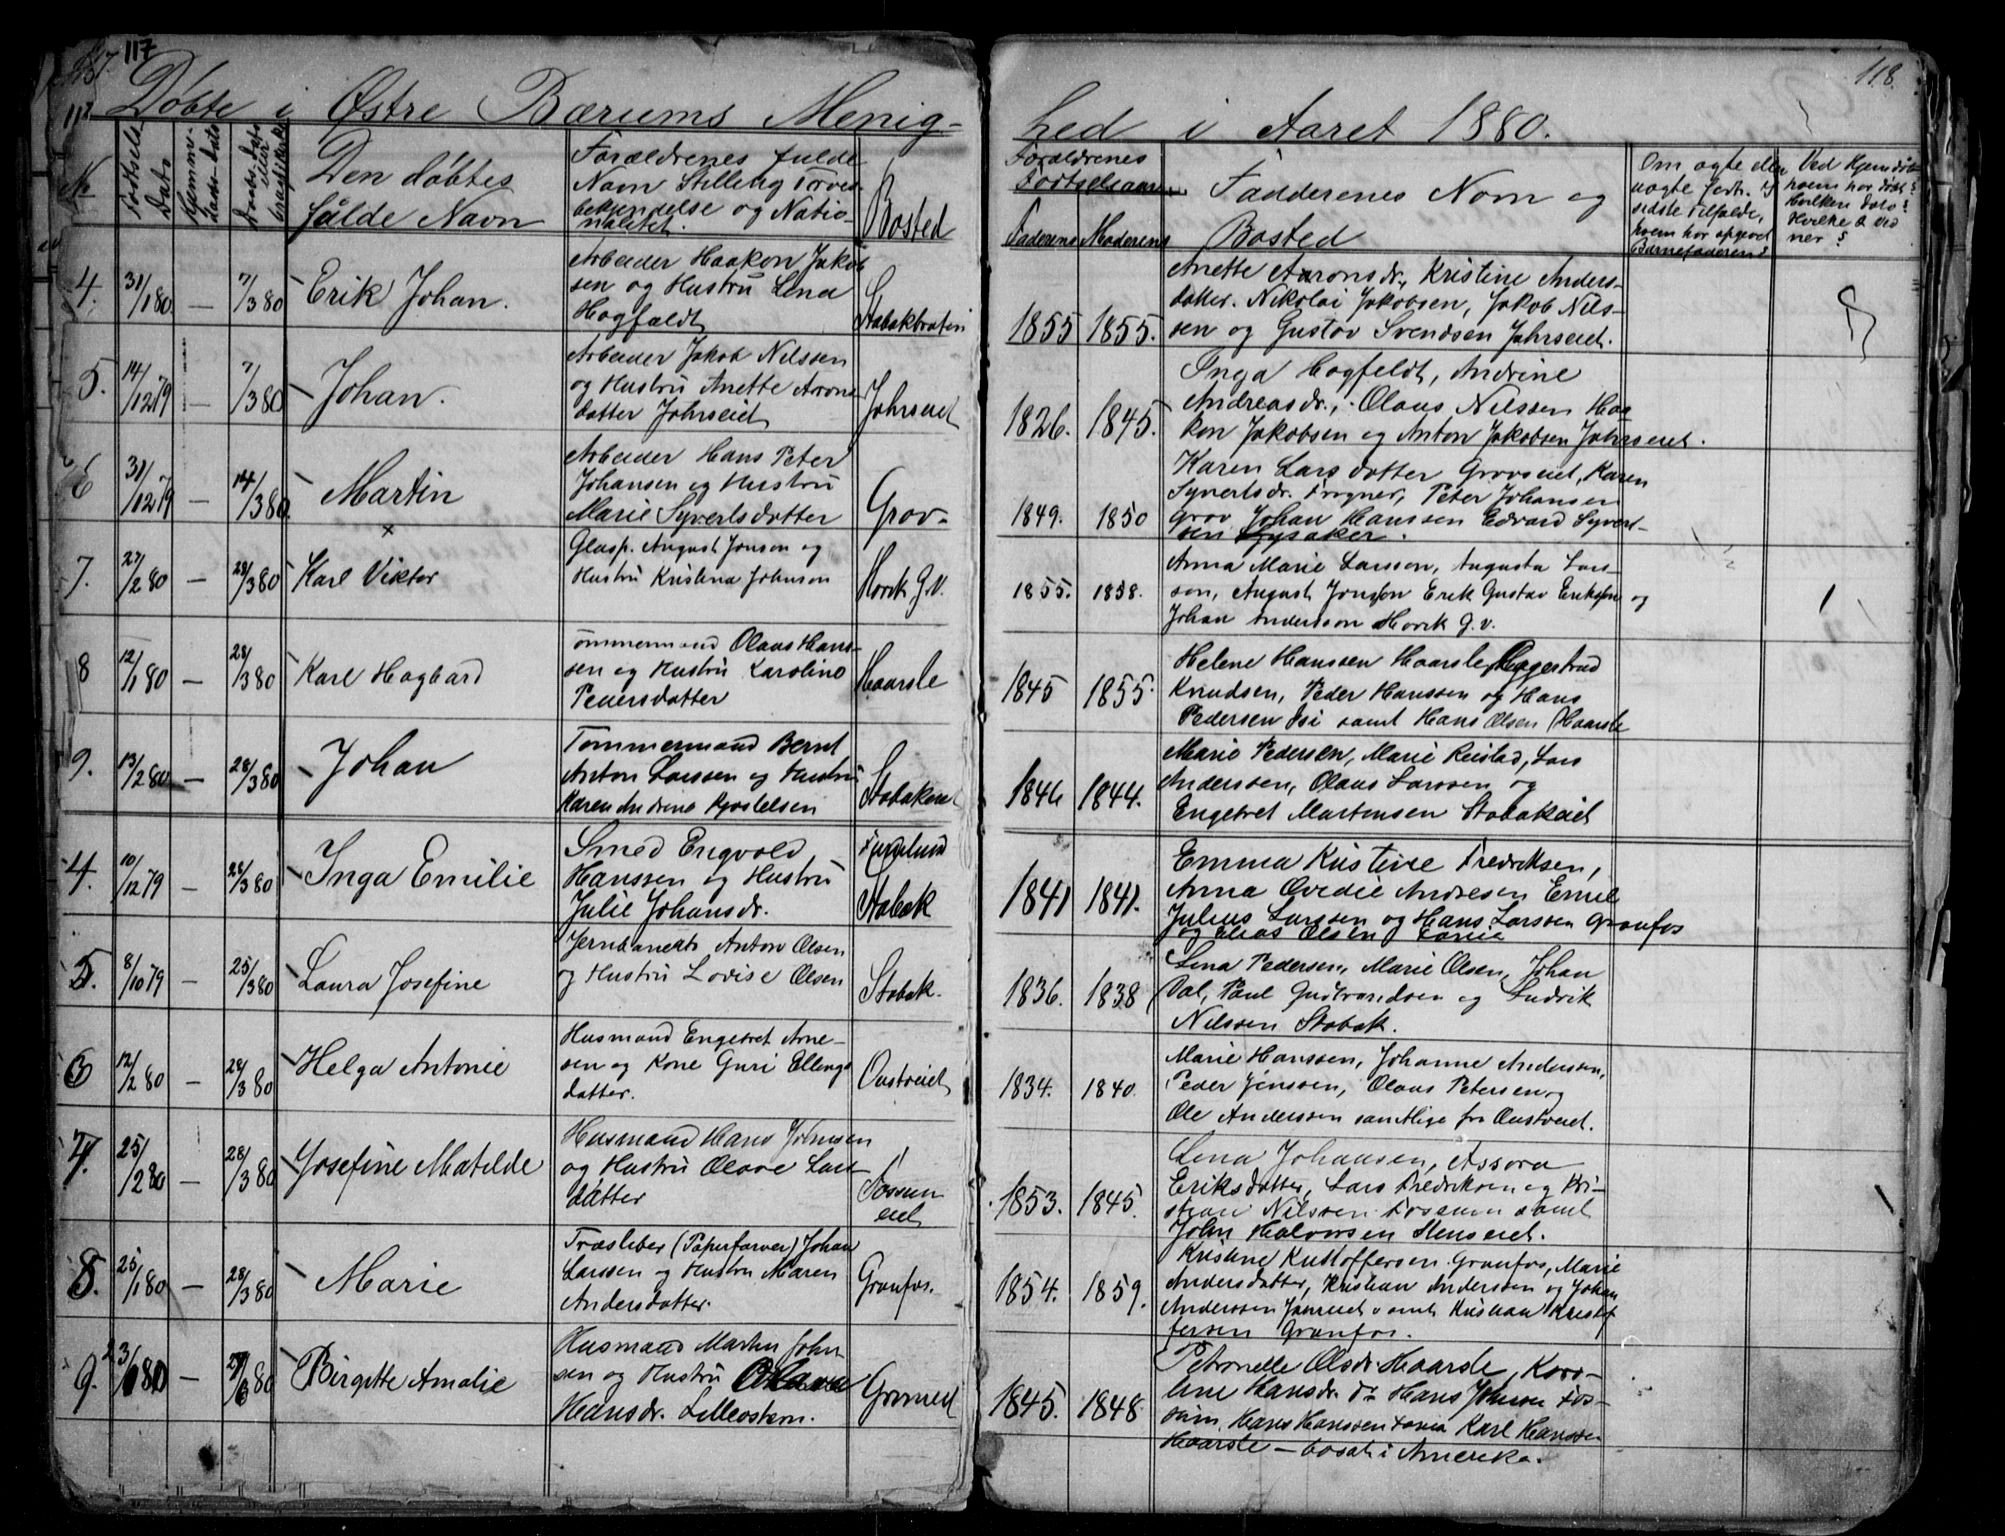 117
118.
Døbte i Østre Bærums Menig-
hed i Aaret 1880.
No
Fødsels Dato
Daabs-Dato eller
Den døbtes
fulde Navn
Forældrenes fulde
Navn Stilling Troves
bekjendelse og Natio-
nalitet.
Bosted
Forældrenes
Fødselsaar
Faderens Moderens
Faddernes Navn og
Bosted
Om ægte eller
uægte født. I
sidste Tilfælde,
hvem har opgivet
Barnefaderen?
Ved Hjemdøbt
hvem har døbt?
Hvilken Dato?
Hvilke 2 Vid
ner?
4. 31/1 80. — 7/3 80 Erik Johan.
Arbeider Haakon Jakob
sen og Hustru Lena
Hogfeldt
Stabakbraten
1855 1855.
Anette Aronsdr., Kristine Anders-
datter. Nikolai Jakobsen, Jakob Nils-
sen og Gustav Svendsen Jahrseiet.
5. 14/12 79 — 7/3 80 Johan.
Arbeider Jakob Nilssen
og Hustru Anette Arons
datter Jahrseiet
Jahrseiet
1826. 1845.
Inga Hogfeldt, Andrine
Andreasdr., Olaus Nilssen Haa
kon Jakobsen og Anton Jakobsen Jahrseiet.
6 31/12 79 — 14/3 80. Martin
x
Arbeider Hans Peter
Johansen og Hustru
Marie Syvertsdatter
Grav-
1849. 1850
Karen Larsdatter Gravseiet, Karen
Syvertsdr. Frogner, Peter Johansen
Grav Johan Hanssen Edvard Syvert-
sen Lysaker.
7. 27/2 80 — 28/3 80 Karl Viktor
Glasp. August Jonson og
Hustru Kristina Johnson
Høvik G.V.
1855. 1858.
Anna Marie Larsson, Augusta Lars-
son, August Jonsson Erik Gustav Eriksson og
Johan Andersson Høvik G.V.
8 12/1 80 — 28/3 80 Karl Hagbard
Tømmermand Olaus Hans-
sen og Hustru Karoline
Pedersdatter
Haarsle
1845 1855.
Helene Hanssen Haarsle,
Knudsen, Peder Hanssen og Hans
Pedersen Isi samt Hans Olsen Haarsle
9. 13/2 80 — 28/3 80 Johan
Tømmermand Bernt
Anton Larssen og Hustru
Karen Andrine Kjøstelsen
Stabakeiet
1846 1844.
Marie Pedersen, Marie Reistad, Lars
Anderssen, Olaus Larssen og
Engebret Martensen Stabakeiet
4. 10/12 79 — 28/3 80 Inga Emilie
Smed Engvold
Hanssen og Hustru
Julie Johansdr.
Stabak
1841 1841.
Emma Kristine Fredriksen,
Anna Ovedie Andresen Emil
Julius Larssen og Hans Larssen Granfos
og Elias Olsen
5. 8/10 79 — 25/3 80 Laura Josefine
Jernbanekt. Anton Olsen
og Hustru Lovise Olsen
Stabak.
1836. 1838
Lina Pedersen, Marie Olsen, Johan
Dal, Paul Gudbrandsen og Ludvik
Nilssen Stabak.
6 12/2 80 — 28/3 80 Helga Antonie
Husmand Engebret Arne-
sen og Kone Guri Ellings
datter.
Oustveiet
1834. 1840.
Marie Hanssen, Johanne Andersen,
Peder Jenssen, Olaus Petersen og
Ole Anderssen samtlige fra Oustveiet.
7. 25/2 80 — 28/3 80 Josefine Matilde
Husmand Hans Johnsen
og Hustru Olave Lars
datter
Fossum
eiet
1853. 1845.
Lena Johansen, Assora
Eriksdatter, Lars Fredriksen og Kri-
stian Nilssen Fossum samt
John Halvorsen Stenseiet.
8. 25/1 80 — 28/3 80 Marie
Træsliber (Papirfarver) Johan
Larssen og Hustru Maren
Andersdatter.
Granfos.
1854. 1859.
Kristine Kristoffersen Granfos, Marie
Andersdatter, Kristian Anderssen og Johan
Anderssen Jahrseiet samt Kristian Kristof
fersen Granfos.
9. 80 — 27/6 80 Birgitte Amalie
Husmand Martin John
sen og Hustru Olava
Hansdr. Lilleøstern.
Grinied
1845. 1848
Petronelle Olsdr. Haarsle, Karo-
line Hansdr. do Hans Johnsen Fos-
sum, Hans Hanssen Karl Hanssen
Haarsle — bosat i Amerika.